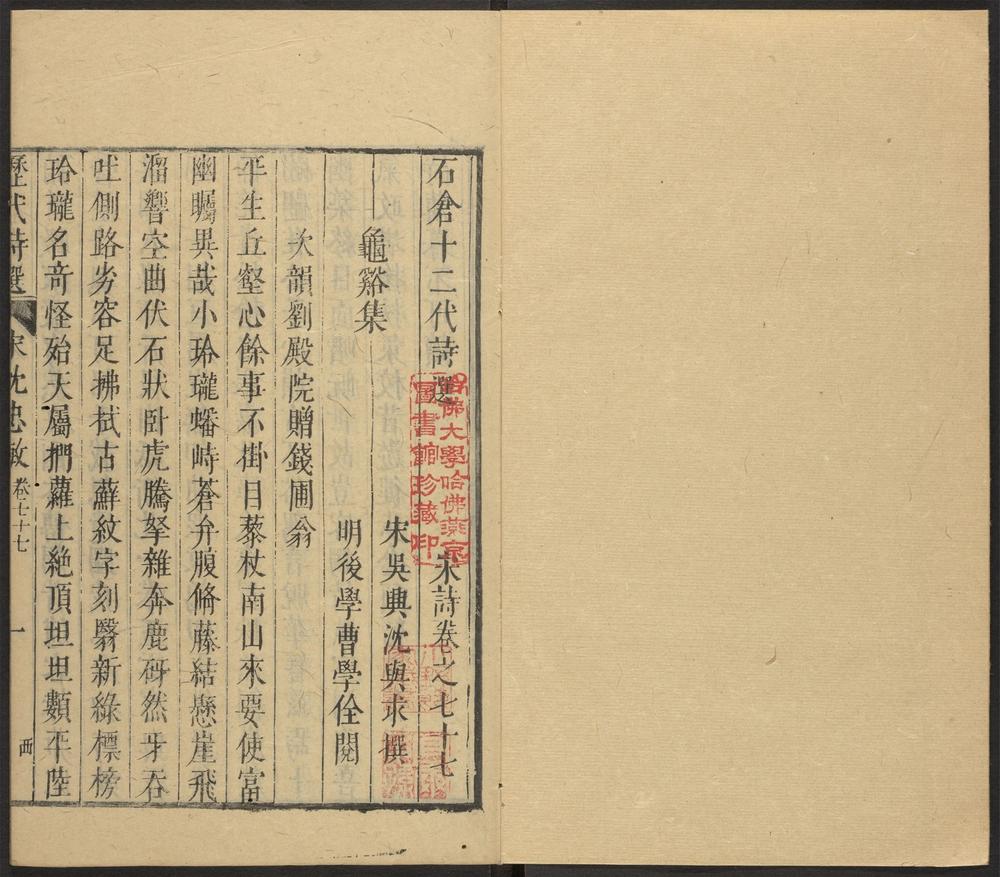 石倉十二代詩選 宋詩卷之七十七
龜谿集 宋吳興沈與求撰
明後學曹學佺閱
次韻劉殿院贈錢圃翁
平生丘壑心餘事不掛目藜杖南山來要使富
幽矚異哉小玲瓏蟠峙蒼弁腹脩藤結懸崖飛
溜響空曲伏石狀卧虎騰拏雜奔鹿砑然牙吞
吐側路劣容足拂拭古蘚紋字刻翳新綠標榜
玲瓏名竒怪殆天屬捫蘿上絶頂坦坦類平陸
歷代詩選 宋沈忠敏 卷七十七 一 西
哈佛大學哈佛燕京
圖書館珍藏印